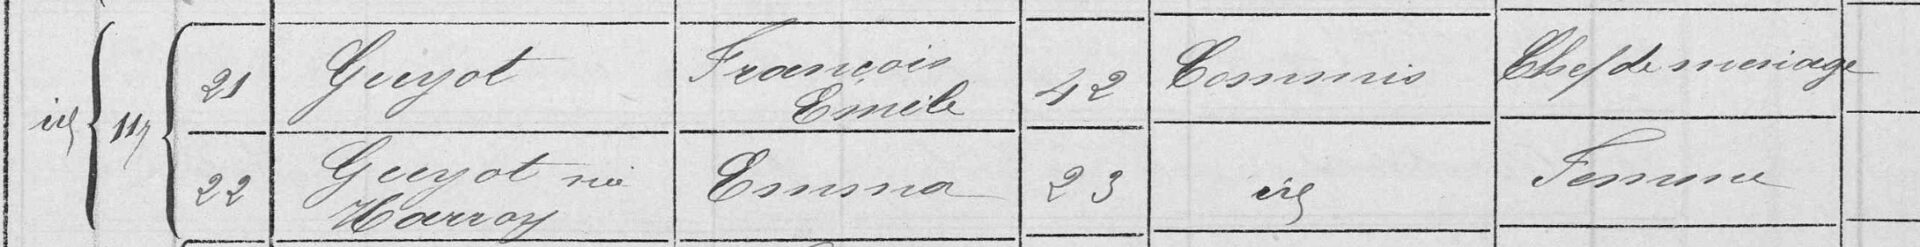 21 Guyot François Émile 42 Commis Chef de menage
22 Guyot née Harroy Emma 23 Femme